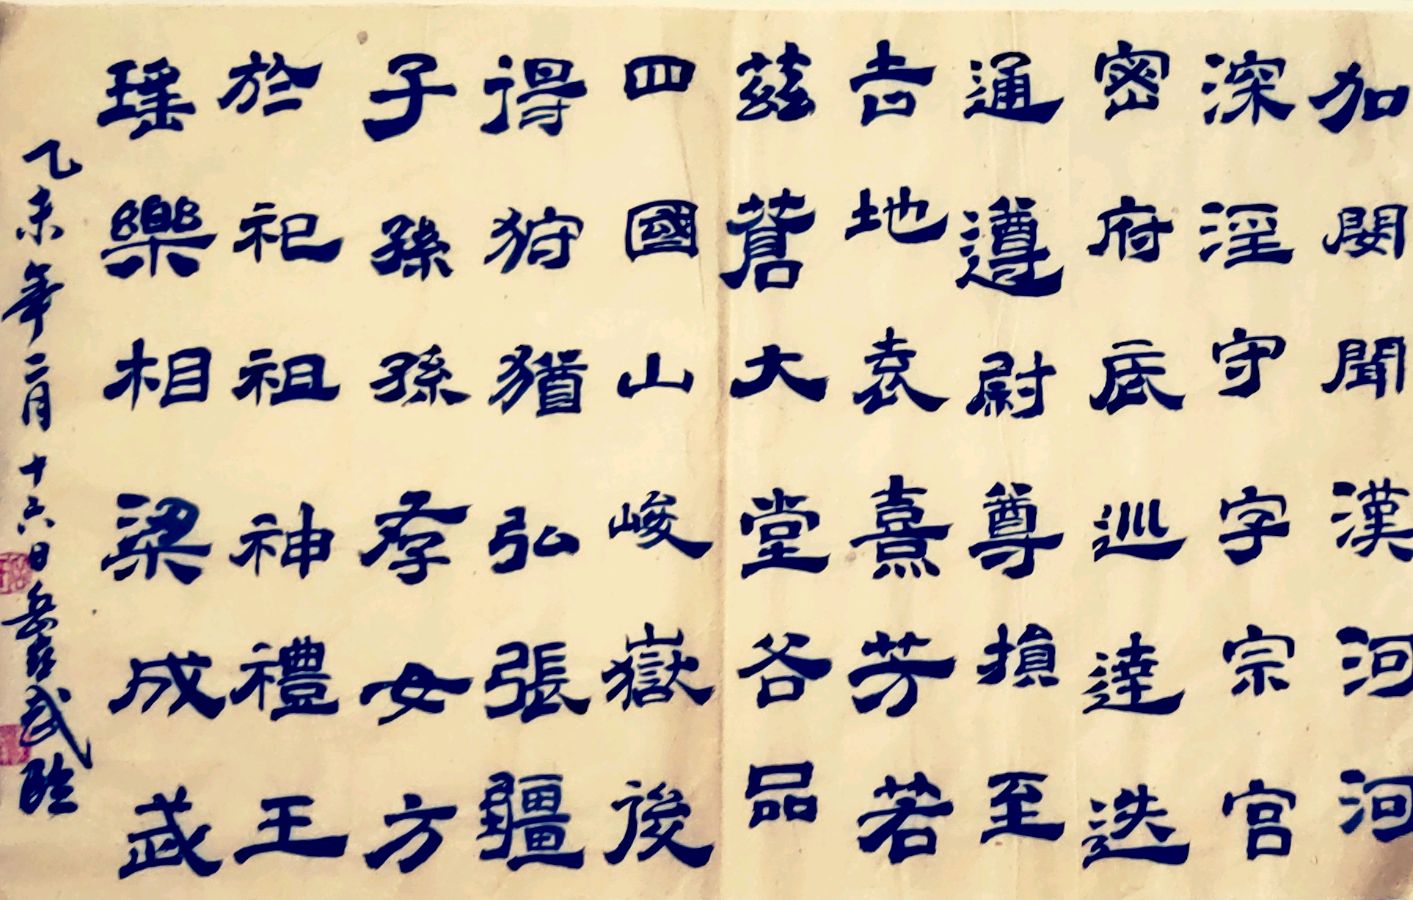 加閿聞漢河河
深淫守字宗宮
密府底巡達迭
通遵尉尊損至
吉地袁熹芳若
茲蒼大堂各品
四國山峻嶽後
得狩猶弘張疆
子孫孫孝女方
於祀祖神禮王
瑶樂相梁成武
乙未年二月十六日岳武